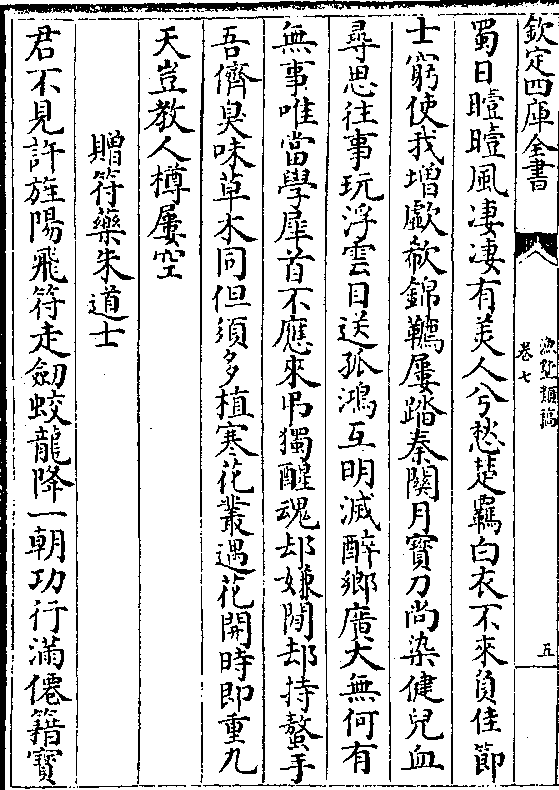 欽定四庫全書
漁墅類稿
卷七
五
蜀日曀曀風凄凄有美人兮愁楚羈白衣不來負佳節
士窮使我增歔欷錦韉屢踏秦關月寶刀尚染健兒血
尋思往事玩浮雲目送孤鴻互明滅醉鄉廣大無何有
無事唯當學犀首不應來弔獨醒魂却嫌閒却持螯手
吾儕臭味草木同但須多植寒花叢遇花開時即重九
天豈教人樽屢空
贈符藥朱道士
君不見許旌陽飛符走劒蛟龍降一朝功行滿僊籍寶